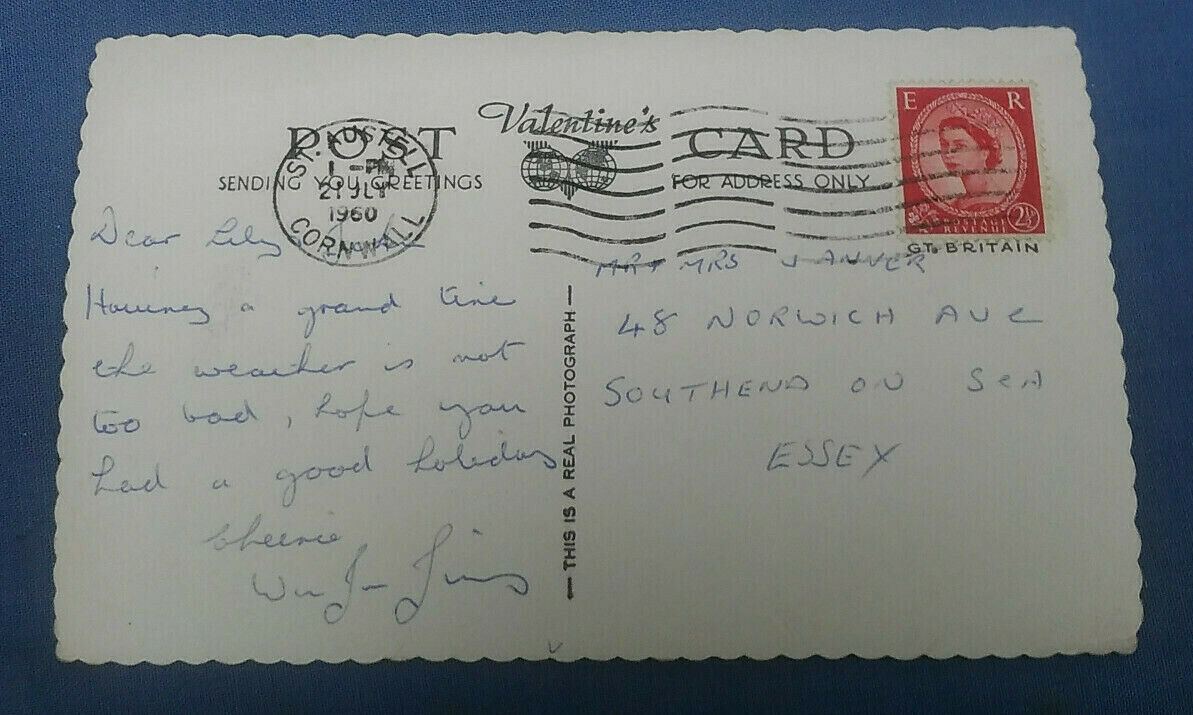 POST Valentine's CARD
SENDING YOU GREETINGS
FOR ADDRESS ONLY
ST. AUSTELL
1 - PM
21 JLY
1960
CORNWALL
E R
POSTAGE
REVENUE
2½
GT. BRITAIN
Dear Lily
Having a grand time
the weather is not
too bad, hope you
had a good holiday
Cheerio
— THIS IS A REAL PHOTOGRAPH —
MR & MRS
48 NORWICH AVE
SOUTHEND ON SEA
ESSEX